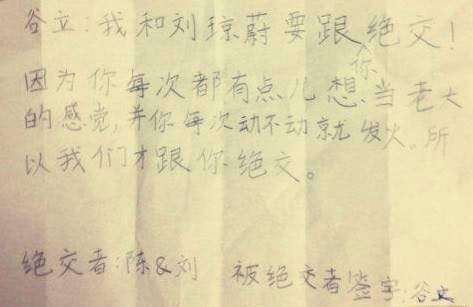 谷立:我和刘琼蔚要跟你绝交!
因为你每次都有点儿想当老大
的感觉,并你每次动不动就发火。所
以我们才跟你绝交。
绝交者:陈&刘 被绝交者签字:谷立